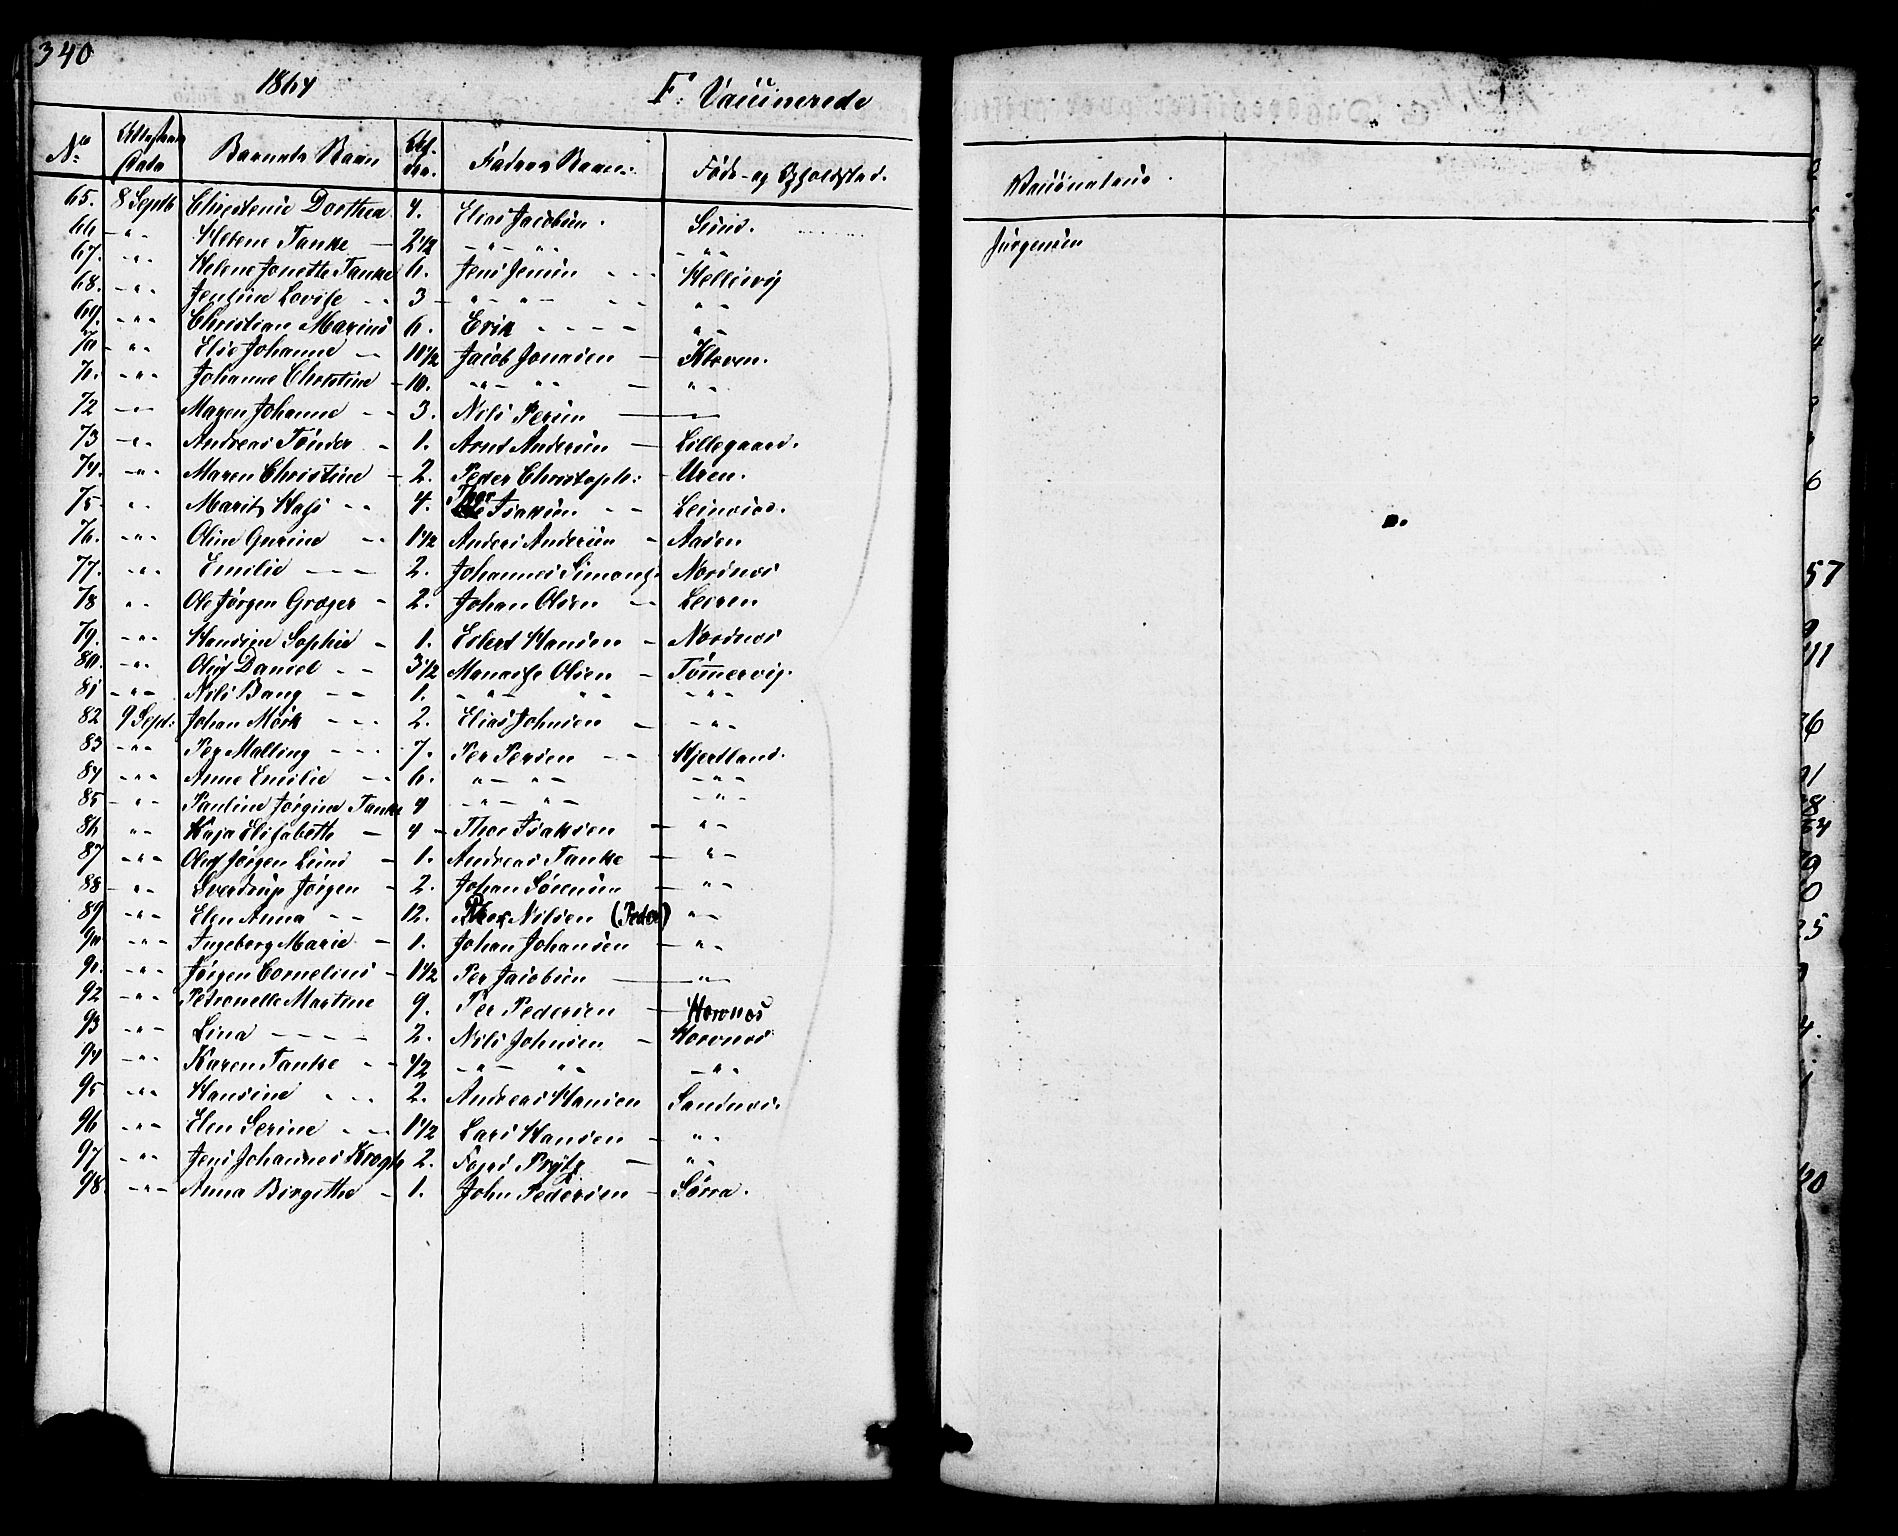 340
1864 F. Vaccinerede
No Attestens Data Barnets Navn Al- der. Fadrens Navn. Føde- og Opholdsted. Vaccinateur.
65. 8 Septb Christense Dorthea 4. Elias Jacobsen. Sund. Jürgensen
66 - " - Helene Tanke — 2 1/2 - " - " " - " -
67. - " - Helene Jonette Tanke 6. Jens Jensen - - - Hellesvig
68. - " - Jensine Lovise - - 3 - " - " - - - " -
69. - " - Christian Marius 6. Erik - - - - " -
70 - " - Else Johanne — 10 1/2 Jacob Jonassen — Kloven.
71. - " - Johanne Christine - 10. - " - " " — " -
72 - " - Magen Johanne - - 3. Nils Persen ———
73 - " - Andreas Tønder - 1. Arnt Andersen — Lillegaard.
74. - " - Maren Christine - 2. Peder Christoph: - Uren.
75 " - Marit Hass - - 4. Thor Isaksen - - Leinvior.
76. - " - Oline Gurine - - 1 1/2 Anders Andersen - Aasen
77. - " - Emilie - - - 2. Johannes Simons. Nordnes
78 " - Ole Jørgen Grøger - 2. Johan Olsen - - Leiren
79. - " - Hansine Sophie - 1. Edert Hansen - Nordnes
80. - " - Oluf Daniel - - 3 1/2 Manasse Olsen - Tømervig.
81 - " - Nils Bang - - 1. - " - " - - " -
82 9 Sept: Johan Mörk - - - 2. Elias Johnsen — - " -
83 - " - Peg Malling - - - 7. Per Persen - - Hjertland.
84 - " - Anne Emilie - - 6. " - " - - " -
85 - " - Pauline Jørgine Tanke 4 - " - " - - " -
86 " - Kaja Elisabeth — 4 - Thor Isaksen — " -
87 - " - Oluf Jørgen Lund - 1. Andreas Tanke — " -
88 - " - Sverdrup Jörgen - 2. Johan Sørensen — " -
89 - " - Elen Anna - - 12. Nilsen (Peder) " -
90 - " - Ingeborg Marie - 1. Johan Johansen — " -
91. - " - Jørgen Cornelius - 1 1/2 Per Jacobsen —— " -
92 - " - Petronelle Martine 9. Per Pedersen — Hornnes
93 - " - Lina - - - - 2. Nils Johnsen - Hornnes
94 - " - Karen Tanke - - 1/2 - " - " - - " -
95 - " - Hansine - - - 2. Andreas Hansen Sandnes.
96 - " - Elen Serine - - 1 1/2 Lars Hansen - " -
97 - " - Jens Johannes Krogh 2. Prytz — " -
98. - " - Anna Birgithe - 1. John Pedersen - Sørra.